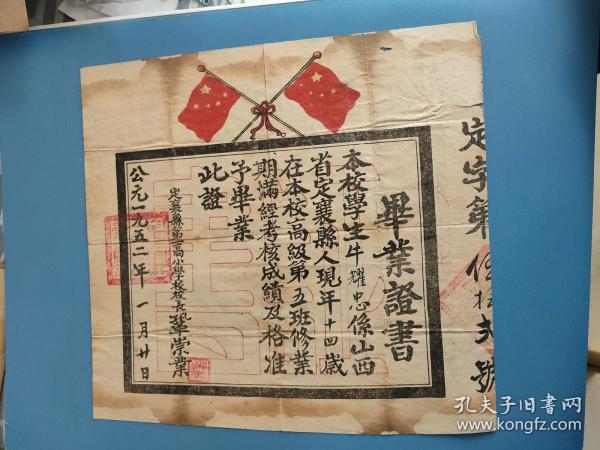 定字第伍拾玖號
畢業證書
本校學生牛耀忠係山西
省定襄縣人現年十四歲
在本校高級第五班修業
期滿經考核成績及格准
予畢業
此證
定襄縣第高小學校校長鞏崇業
公元一九五二年一月廿日
孔夫子旧书网
www.kongfz.com